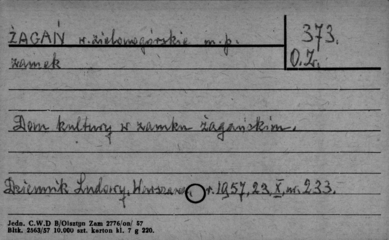 ŻAGAŃ w. zielonogórskie m. p.
373.
zamek
O.Z.
Dom kultury w zamku żagańskim.
Dziennik Ludowy, Warszawa, r. 1957, 23, X, nr. 233.
Jedn. C.W.D B/Olsztyn Zam 2776/on/ 57
Blsk. 2563/57 10.000 szt. karton kl. 7 g 220.